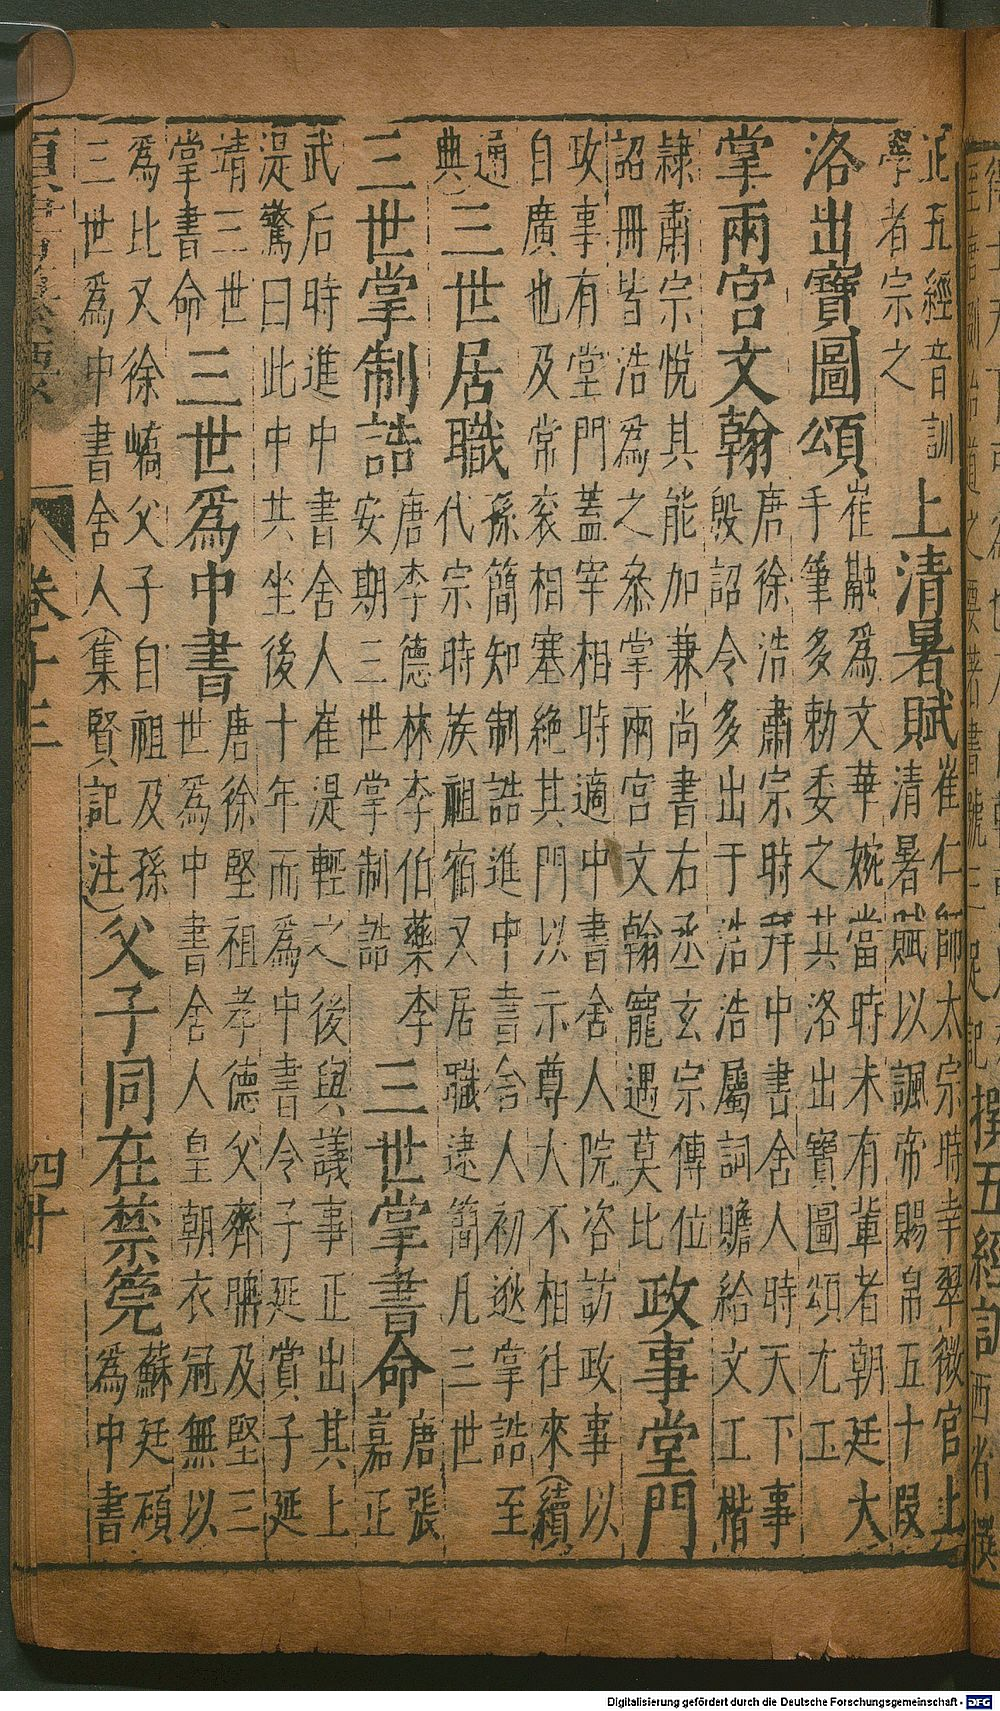 正五經音訓
學者宗之
上清暑賦
崔仁師太宗時幸翠微宮上
清暑賦以諷帝賜帛五十段
洛出寶圖頌
崔融爲文華婉當時未有軰者朝廷大
手筆多勅委之其洛出寶圖頌尤工
掌兩宮文翰
唐徐浩肅宗時拜中書舍人時天下事
殷詔令多出于浩浩屬詞贍給文工楷
隸肅宗悅其能加兼尚書右丞玄宗傳位
詔冊皆浩爲之叅掌兩宮文翰寵遇莫比
政事堂門
政事有堂門蓋宰相時適中書舍人院咨訪政事以
自廣也及常袞相塞絕其門以示尊大不相往來(續
通
典)
三世居職
孫簡知制誥進中書舍人初逖掌誥至
代宗時族祖宿又居職逮簡凡三世
三世掌制誥
唐李德林李伯藥李
安期三世掌制誥
三世掌書命
唐張
嘉正
武后時進中書舍人崔湜輕之後與議事正出其上
湜驚曰此中共坐後十年而爲中書令子延賞子延
靖三世
掌書命
三世爲中書
唐徐堅祖孝德父齊聃及堅三
世爲中書舍人皇朝衣冠無以
爲比又徐嶠父子自祖及孫
三世爲中書舍人(集賢記注)
父子同在禁筦
蘇廷碩
爲中書
卷十三
四十
Digitalisierung gefördert durch die Deutsche Forschungsgemeinschaft - DFG